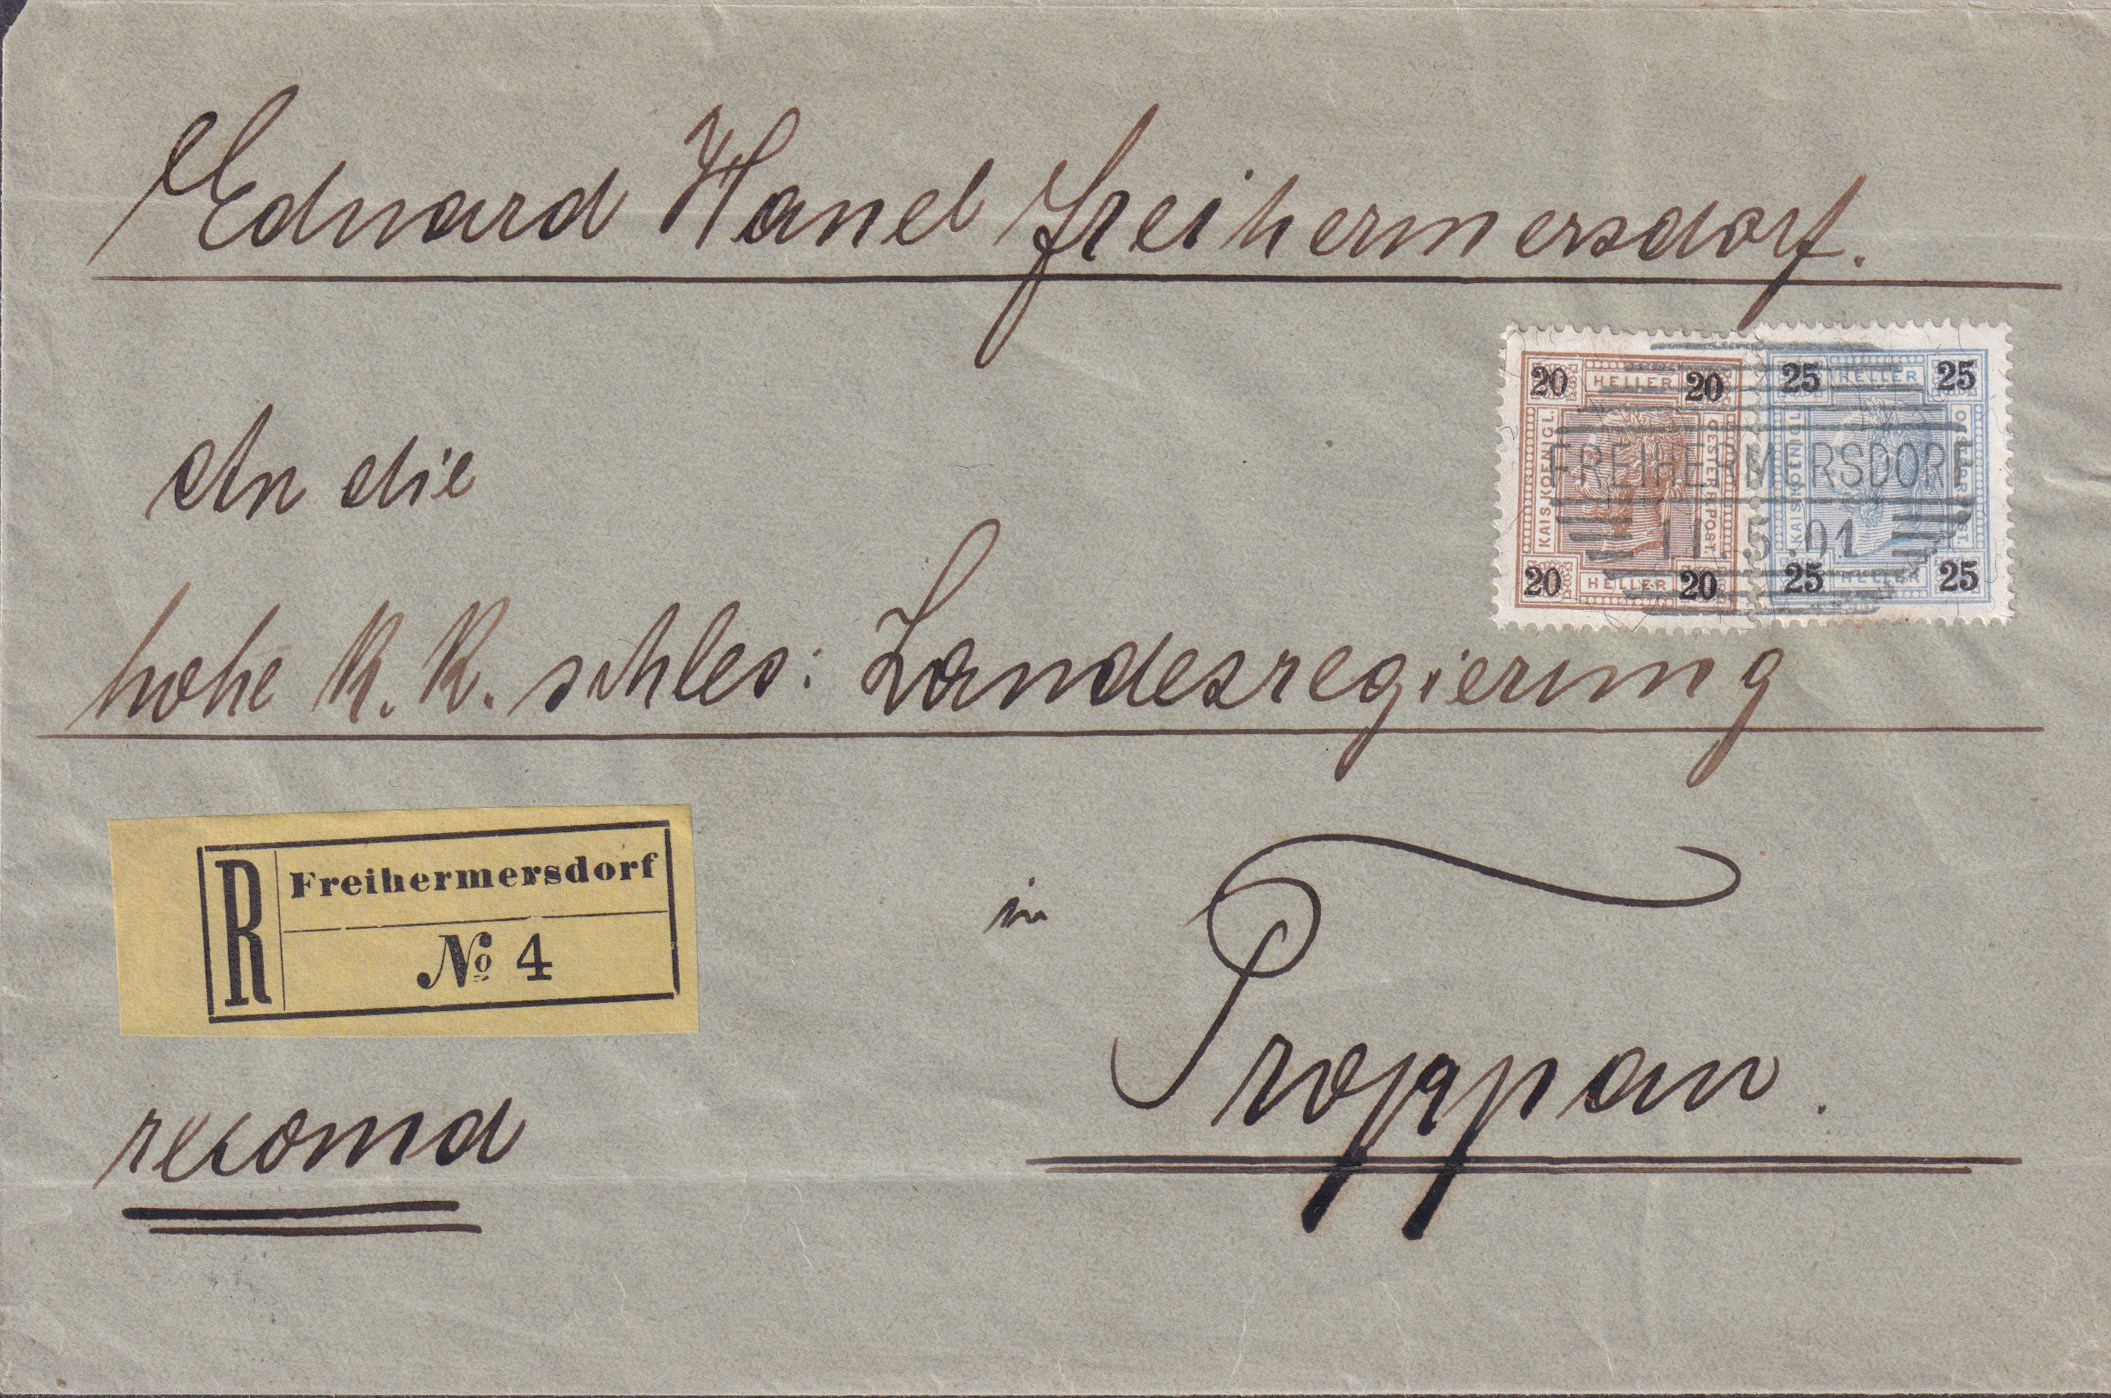 Eduard Hanel Freihermersdorf.
20 HELLER 20
25 HELLER 25
KAIS. KOENIGL.
OESTERR. POST.
KAIS. KOENIGL.
OESTERR. POST.
FREIHERMERSDORF
11.5.01
20 HELLER 20
25 HELLER 25
An die
hohe K. K. schles: Landesregierung
R
Freihermersdorf
No 4
in
Troppau.
recomd